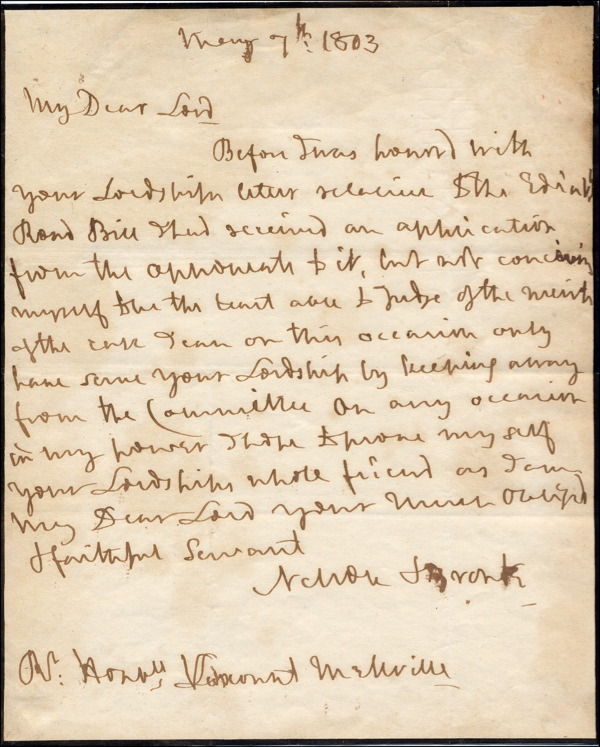 May 7th: 1803
My Dear Lord
Before I was honord with
your Lordships letter relative to the Edinb
Road Bill I had received an application
from the opponents to it, but not conceiving
myself to be the least able to Judge of the merits
of the case I can on this occasion only
have serve your Lordship by keeping away
from the Committee On any occasion
in my power I hope to prove my self
your Lordships whole friend as I am
My Dear Lord your Much Oblig'd
& faithful Servant
Nelson & Bronte
Rt: Honble Viscount Melville